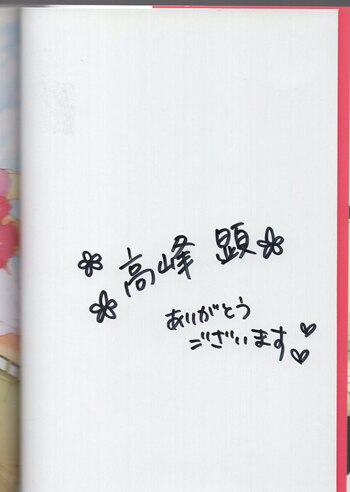 高峰 顕
ありがとう
ございます